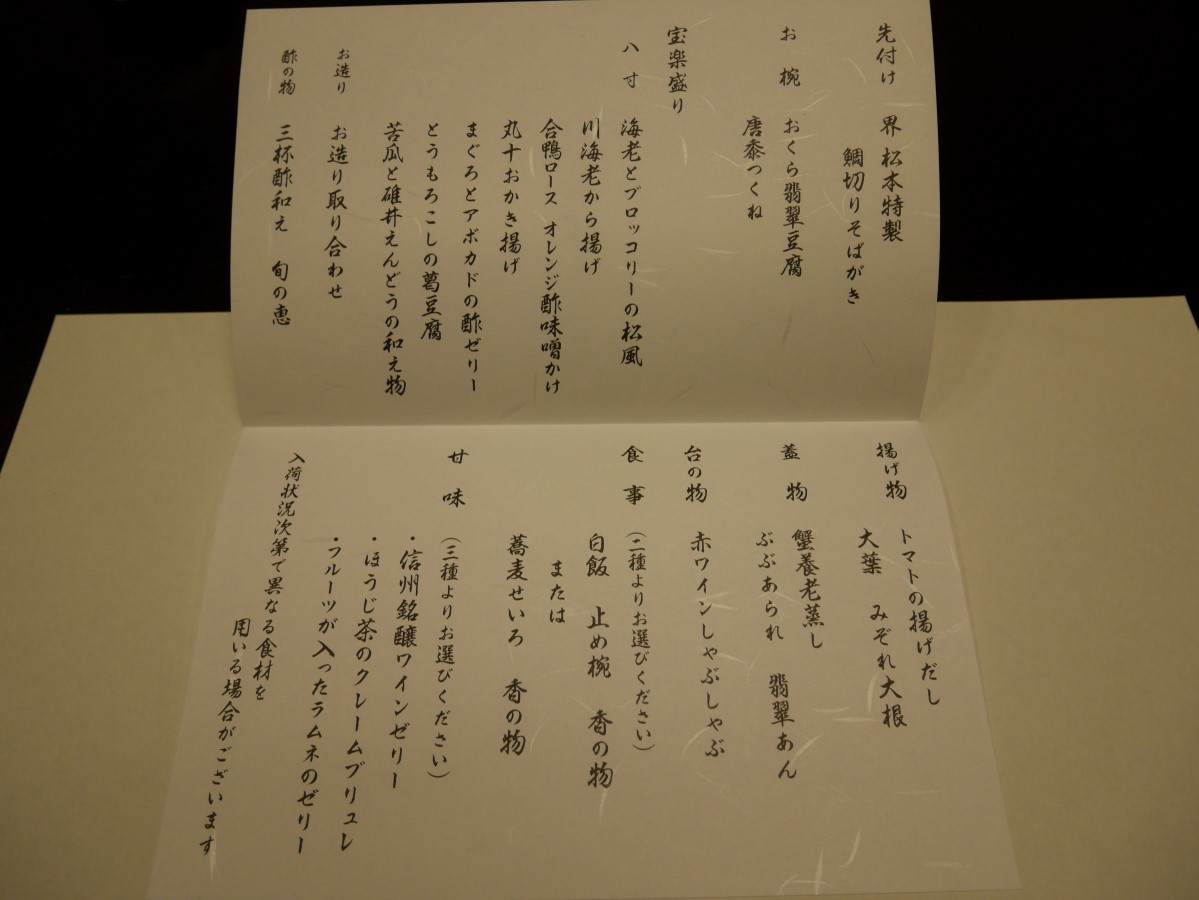 先付け 界 松本特製
鯛切りそばがき
お椀 おくら翡翠豆腐
唐黍つくね
宝楽盛り
八寸 海老とブロッコリーの松風
川海老から揚げ
合鴨ロース オレンジ酢味噌かけ
丸十おかき揚げ
まぐろとアボカドの酢ゼリー
とうもろこしの葛豆腐
苦瓜と碓井えんどうの和え物
お造り お造り取り合わせ
酢の物 三杯酢和え 旬の恵
揚げ物 トマトの揚げだし
大葉 みぞれ大根
蓋物 蟹養老蒸し
ぶぶあられ 翡翠あん
台の物 赤ワインしゃぶしゃぶ
食事 (二種よりお選びください)
白飯 止め椀 香の物
または
蕎麦せいろ 香の物
甘味 (三種よりお選びください)
・信州銘醸ワインゼリー
・ほうじ茶のクレームブリュレ
・フルーツが入ったラムネのゼリー
入荷状況次第で異なる食材を
用いる場合がございます